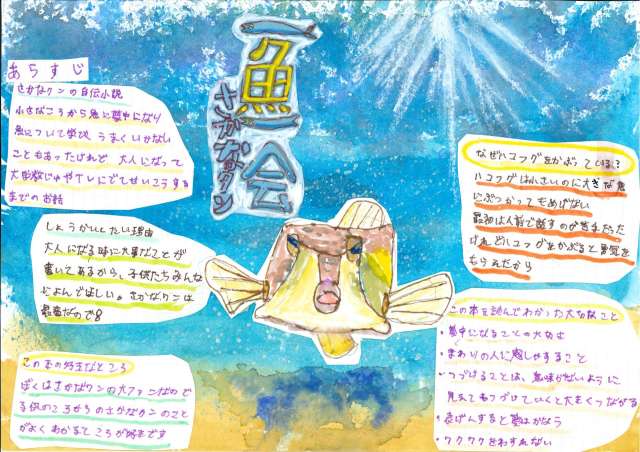 一魚一会
さかなクン
あらすじ
さかなクンの自伝小説
小さなころから魚に夢中になり
魚について学び うまくいかない
こともあったけれど 大人になって
大学教じゅやテレビにでてせいこうする
までのお話
しょうかいしたい理由
大人になる時に大事なことが
書いてあるから、子供たちみんな
によんでほしい。さかなクンは
最高なのでる
この本の好きなところ
ぼくはさかなクンの大ファンなので
子供のころからのさかなクンのこと
がよくわかるところが好きです
なぜハコフグをかぶっているか?
ハコフグは小さいのに大きな魚
にぶつかってもめげない
最初は人前で話すのが苦手だった
けれどハコフグをかぶると勇気を
もらえたから
この本を読んでわかった大切なこと
・夢中になることの大切さ
・まわりの人に感しゃすること
・つづけることは、意味がないように
見えてもつづけていくと大きくつながる
・
・ワクワクをわすれない